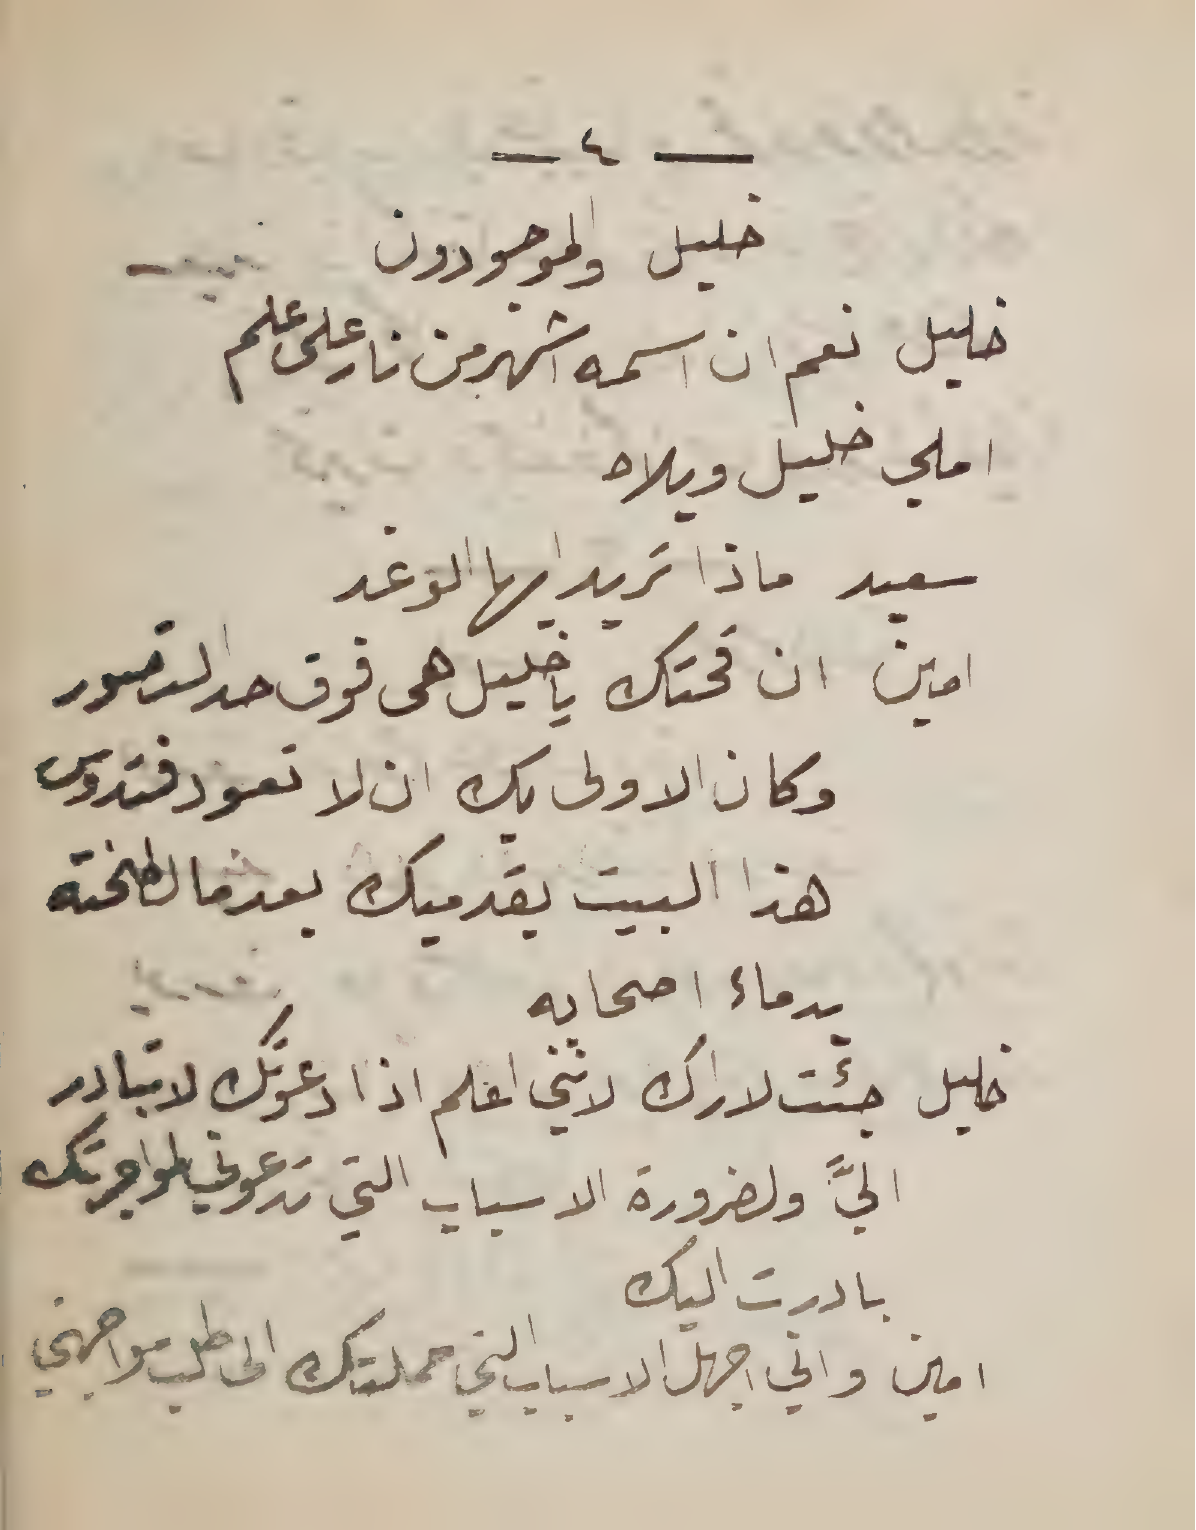 — ٤ —
خليل والموجودون
خليل نعم ان اسمه اشهر من نار على علم
املي خليل ويلاه
سعيد ماذا تريد ايها الوغد
امين ان قحتك يا خليل هي فوق حد التصور
وكان الاولى بك ان لا تعود فتدوس
هذا البيت بقدميك بعد ما لطخته
بدماء اصحابه
خليل جئت لاراك لانني اعلم اذا دعوتك لا تبادر
اليَّ ولضرورة الاسباب التي تدعوني لمواجهتك
بادرت اليك
امين واني اجهل الاسباب التي حملتك الى طلب مواجهتي